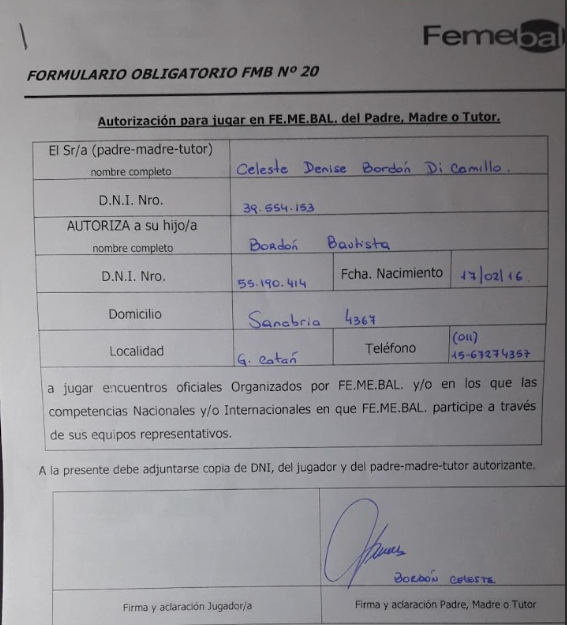 Femebal
FORMULARIO OBLIGATORIO FMB Nº 20
Autorización para jugar en FE.ME.BAL. del Padre, Madre o Tutor.
El Sr/a (padre-madre-tutor)
nombre completo
Celeste Denise Bordón Di Camillo.
D.N.I. Nro.
39.554.153
AUTORIZA a su hijo/a
nombre completo
Bordón Bautista
D.N.I. Nro.
55.190.414
Fcha. Nacimiento
17/02/16.
Domicilio
Sanabria 4367
Localidad
G. Catán
Teléfono
(011)
15-63274357
a jugar encuentros oficiales Organizados por FE.ME.BAL. y/o en los que las
competencias Nacionales y/o Internacionales en que FE.ME.BAL. participe a través
de sus equipos representativos.
A la presente debe adjuntarse copia de DNI, del jugador y del padre-madre-tutor autorizante.
BORDÓN CELESTE
Firma y aclaración Jugador/a
Firma y aclaración Padre, Madre o Tutor